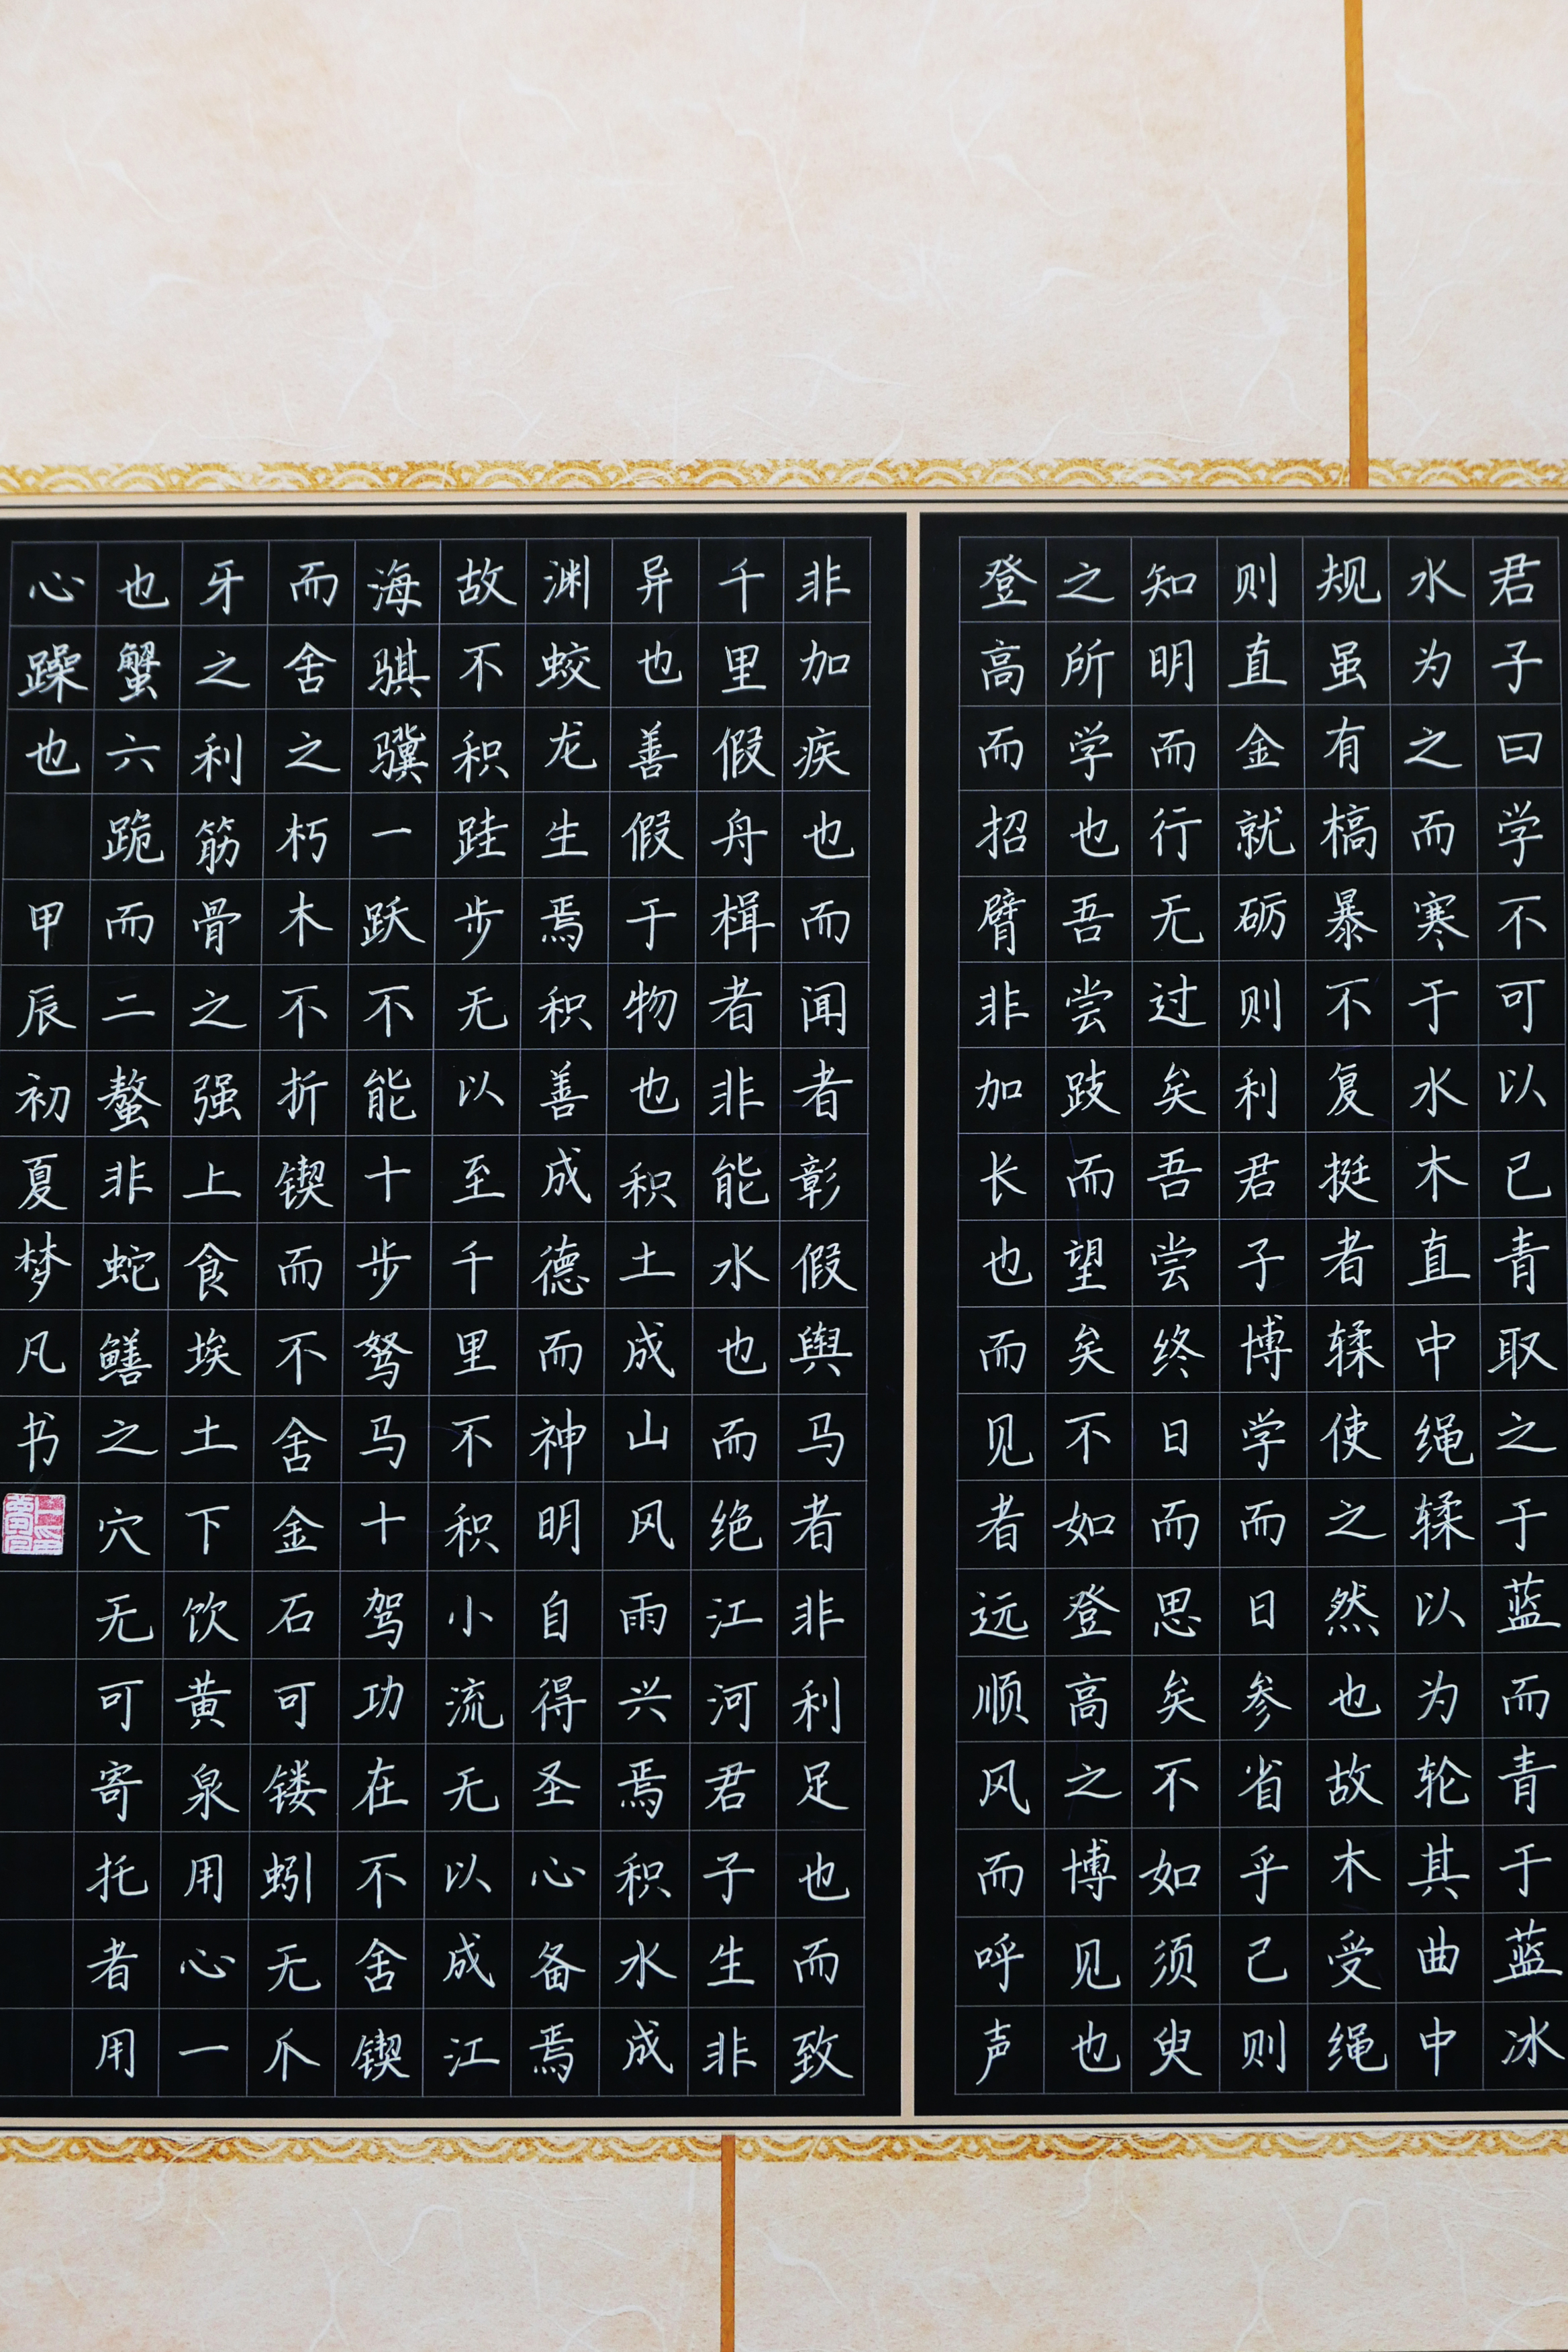 君子曰学不可以已青取之于蓝而青于蓝冰
水为之而寒于水木直中绳輮以为轮其曲中
规虽有槁暴不复挺者輮使之然也故木受绳
则直金就砺则利君子博学而日参省乎己则
知明而行无过矣吾尝终日而思矣不如须臾
之所学也吾尝跂而望矣不如登高之博见也
登高而招臂非加长也而见者远顺风而呼声
非加疾也而闻者彰假舆马者非利足也而致
千里假舟楫者非能水也而绝江河君子生非
异也善假于物也积土成山风雨兴焉积水成
渊蛟龙生焉积善成德而神明自得圣心备焉
故不积跬步无以至千里不积小流无以成江
海骐骥一跃不能十步驽马十驾功在不舍锲
而舍之朽木不折锲而不舍金石可镂蚓无爪
牙之利筋骨之强上食埃土下饮黄泉用心一
也蟹六跪而二螯非蛇鳝之穴无可寄托者用
心躁也 甲辰初夏梦凡书